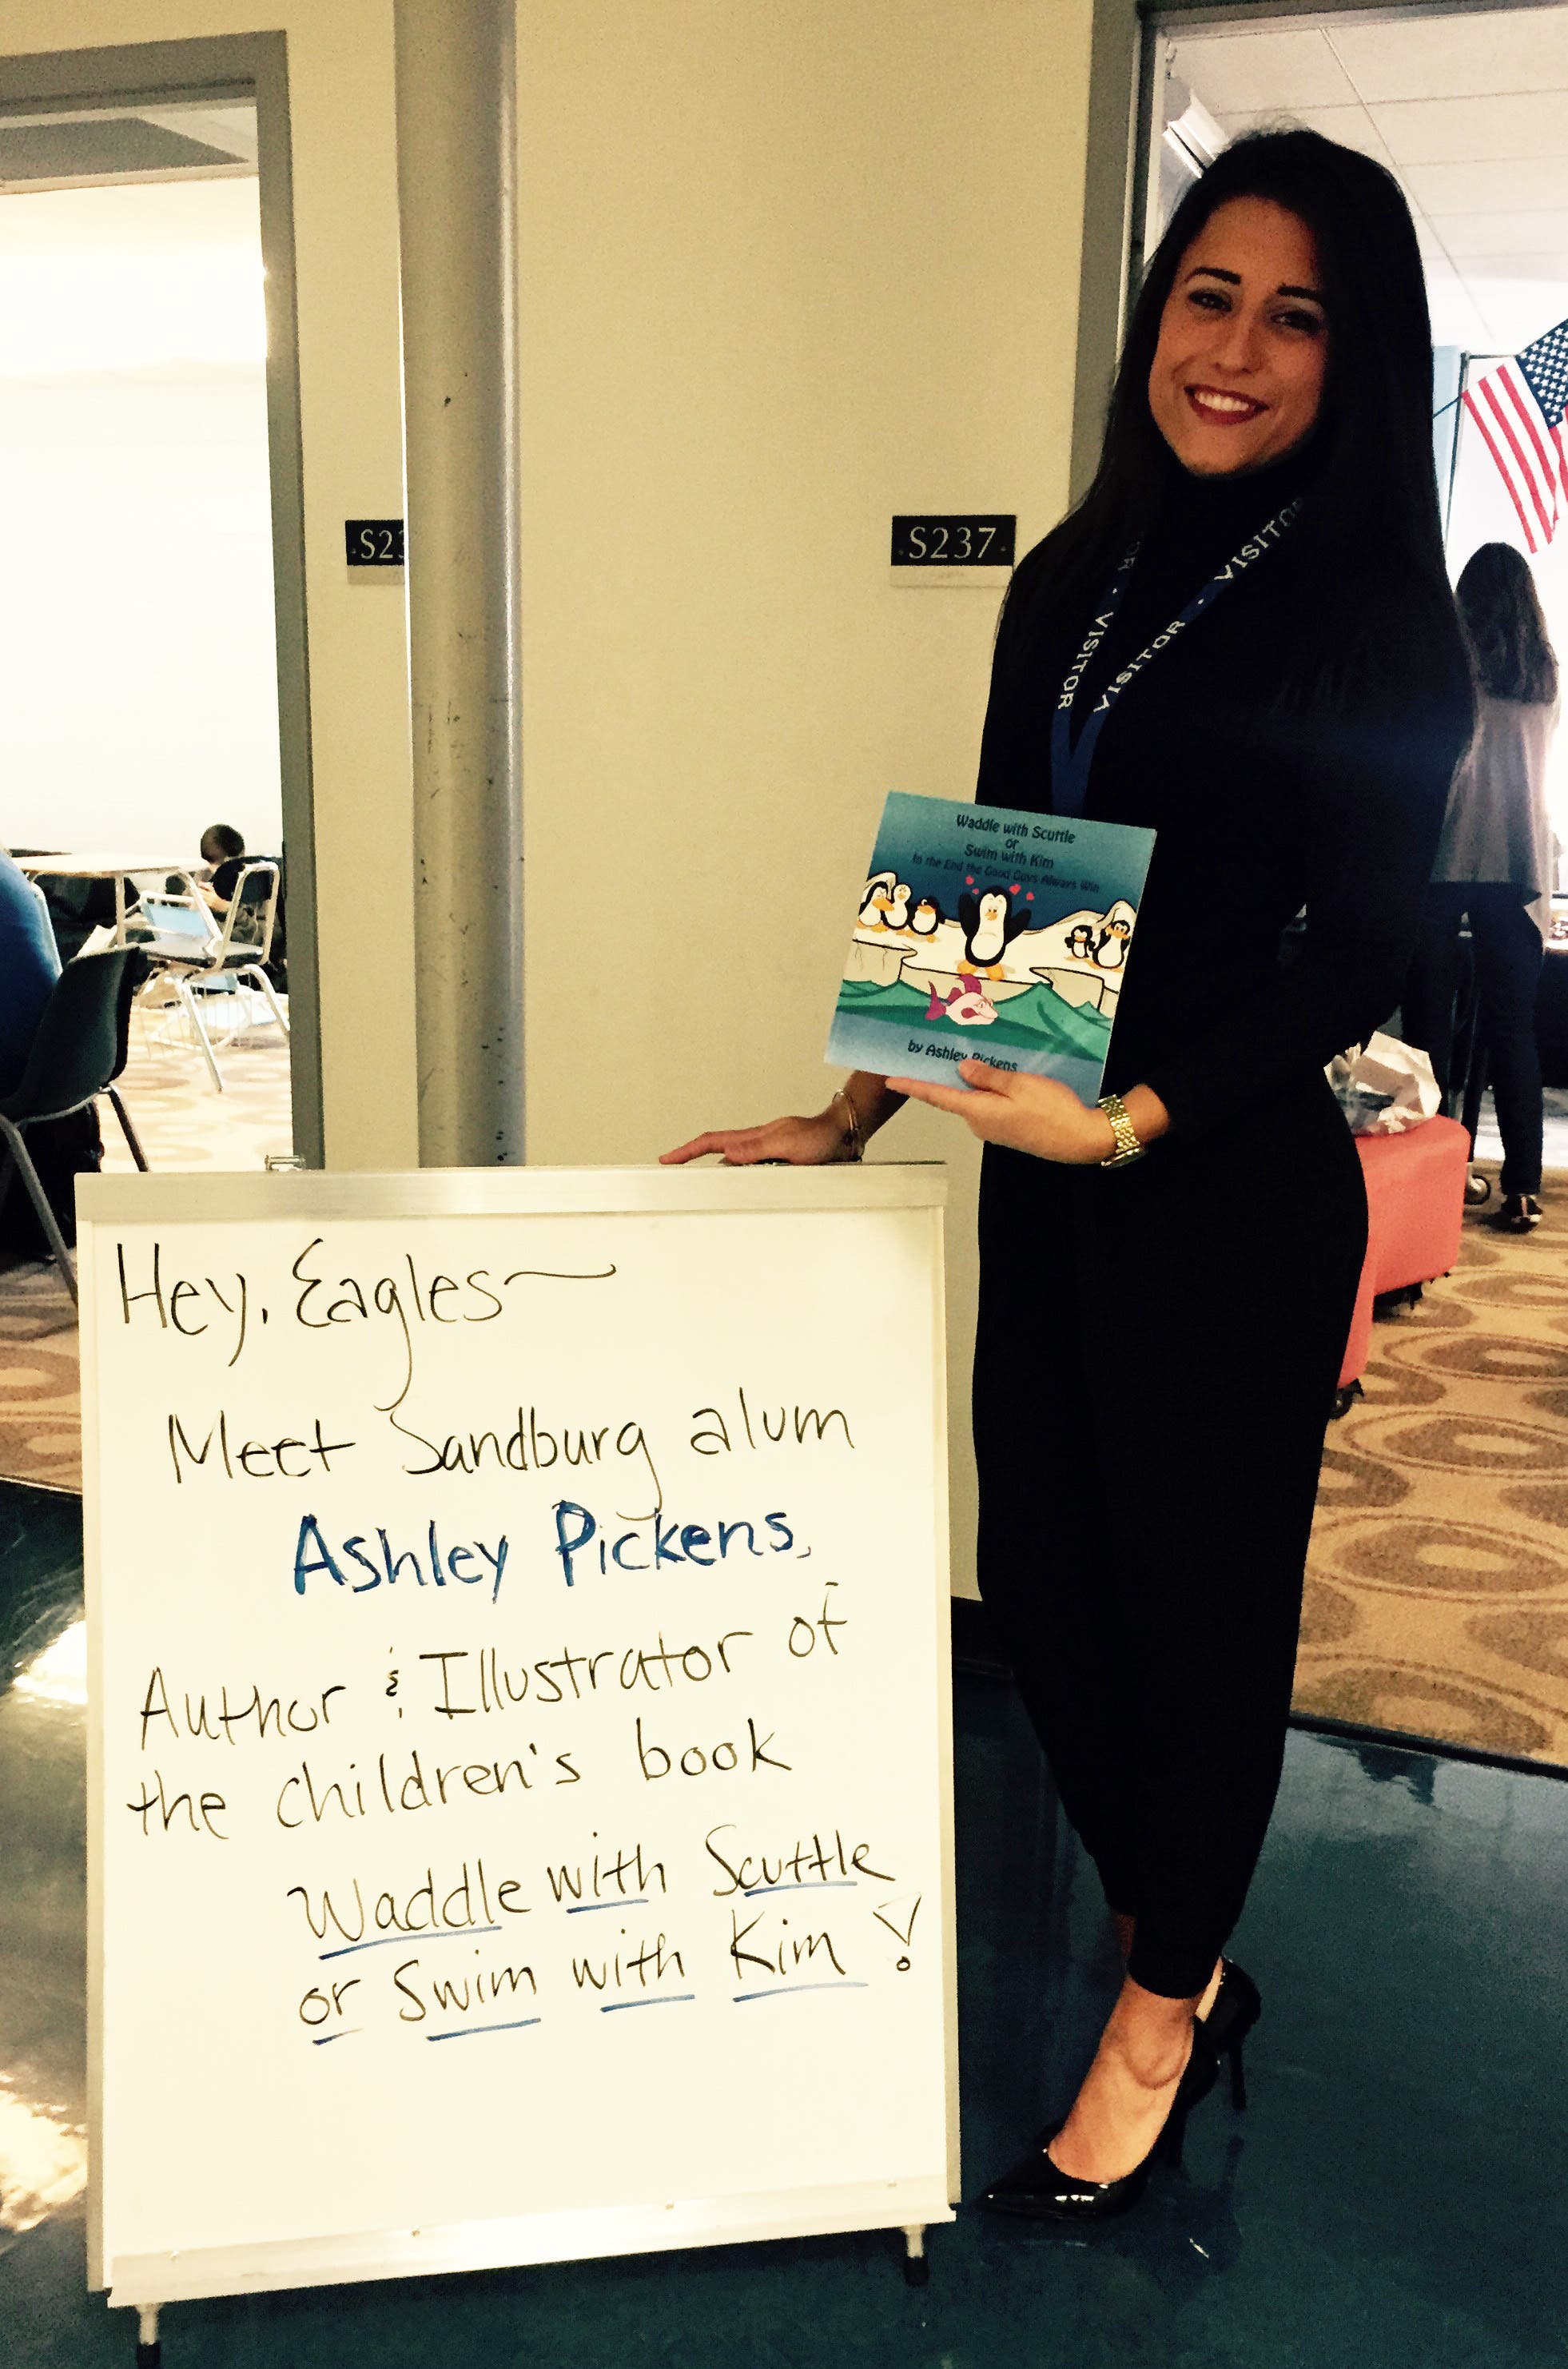 S23
S237
VISITOR
VISITOR · VISITOR
Waddle with Scuttle
or
Swim with Kim
In the End the Good Guys Always Win
by Ashley Pickens
Hey, Eagles~
Meet Sandburg alum
Ashley Pickens,
Author & Illustrator of
the children's book
Waddle with Scuttle
or Swim with Kim!